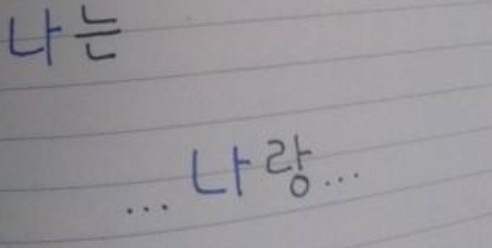 나는
... 나랑...